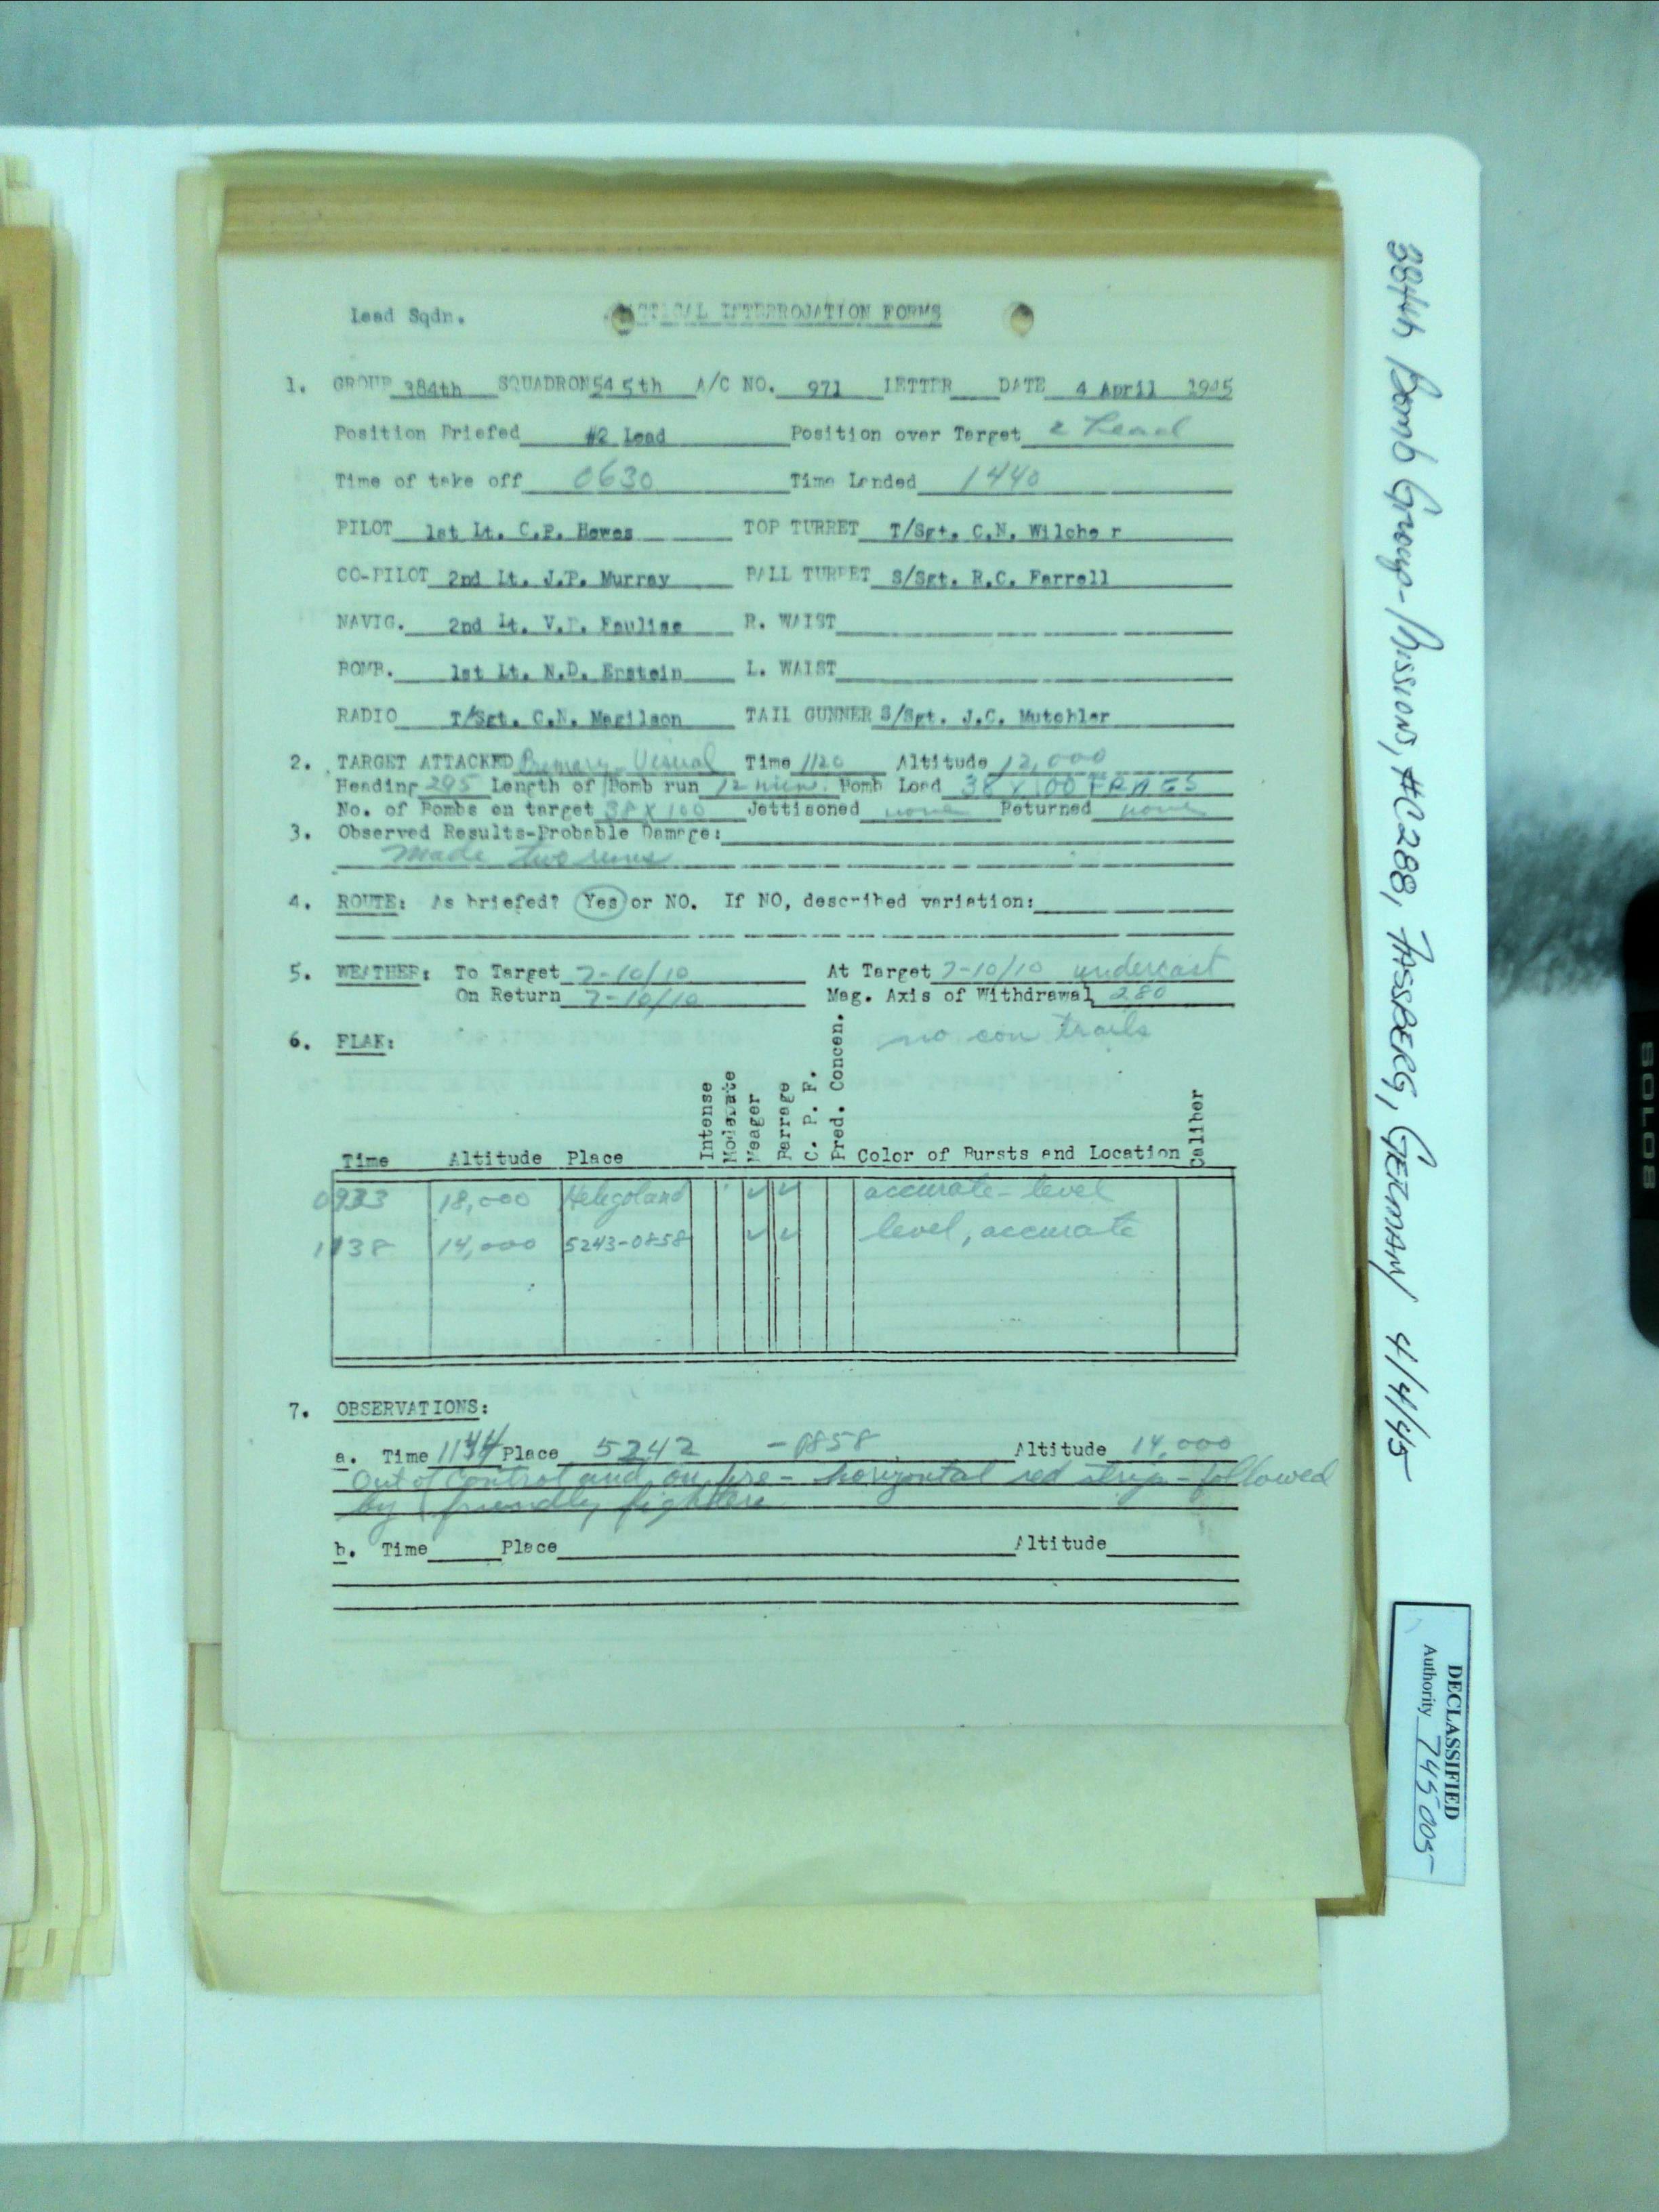 Lead Sqdn.
TACTICAL INTERROJATION FORMS
1. GROUP 384th SQUADRON 545th A/C NO. 971 LETTER DATE 4 April 1945
Position Briefed #2 Lead Position over Target 2 Lead
Time of take off 0630 Time Landed 1440
PILOT 1st Lt. C.P. Hawes TOP TURRET T/Sgt. C.N. Wilcher
CO-PILOT 2nd Lt. J.P. Murray BALL TURRET S/Sgt. R.C. Farrell
NAVIG. 2nd Lt. R. WAIST
BOMB. 1st Lt. N.D. Erstein L. WAIST
RADIO T/Sgt. C.N. Magilson TAIL GUNNER S/Sgt. J.C. Mutchler
2. TARGET ATTACKED Primary-Visual Time 1120 Altitude 12,000
Heading 295 Length of Bomb run 12 min. Bomb Load 38 X 100 FRAGS
No. of Bombs on target 38 X 100 Jettisoned none Returned none
3. Observed Results-Probable Damage:
Made two runs
4. ROUTE: As briefed? Yes or NO. If NO, described variation:
5. WEATHER: To Target 7-10/10 At Target 7-10/10 undercast
On Return 7-10/10 Mag. Axis of Withdrawal 280
6. FLAK: no con trails
Time Altitude Place Intense Moderate Meager Barrage C. P. F. Pred. Concen. Color of Bursts and Location Caliber
0933 18,000 Heligoland ✓ ✓ accurate-level
1138 14,000 5243-0858 ✓ ✓ level, accurate
7. OBSERVATIONS:
a. Time 1144 Place 5242 - 0858 Altitude 14,000
Out of control and on fire - horizontal red strip - followed
by friendly fighters
b. Time Place Altitude
384th Bomb Group-Missions, #C288, FASSBERG, GERMANY 4/4/45
DECLASSIFIED
Authority 745005